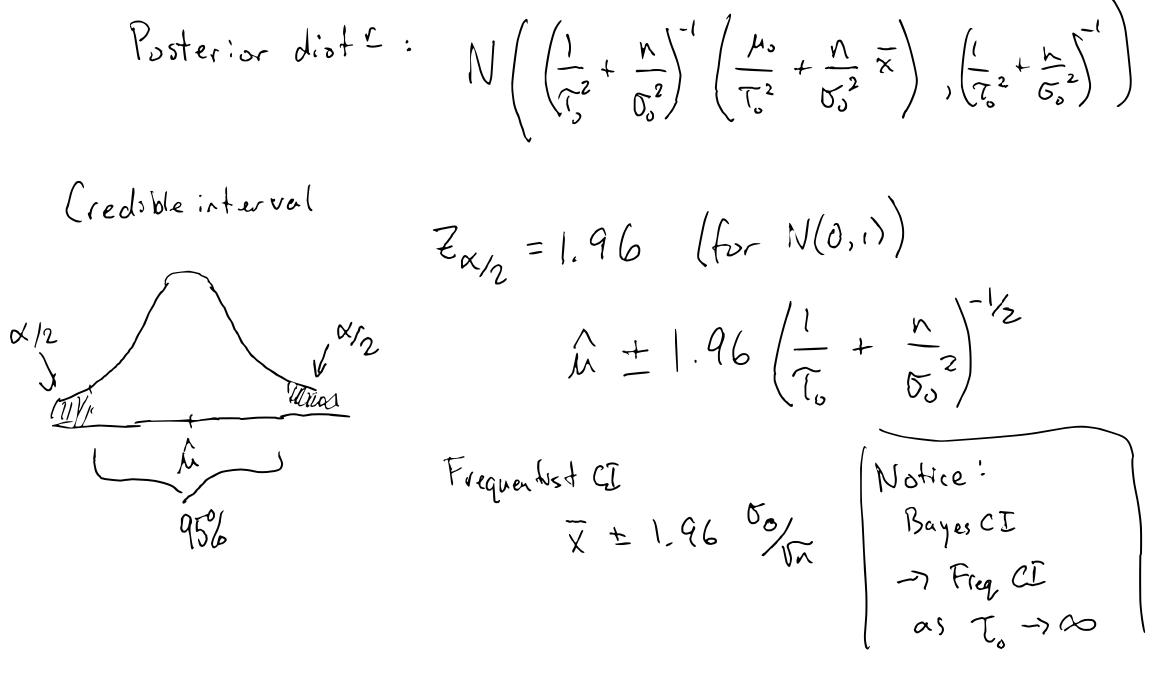 Posterior distr : N((1/τ₀² + n/σ₀²)⁻¹ (μ₀/τ₀² + n/σ₀² x̄), (1/τ₀² + n/σ₀²)⁻¹)
Credible interval
Z_α/2 = 1.96 (for N(0,1))
α/2
α/2
μ̂ ± 1.96 (1/τ₀ + n/σ₀²)^(-1/2)
μ̂
95%
Frequentist CI
x̄ ± 1.96 σ₀/√n
Notice:
Bayes CI
→ Freq CI
as τ₀ → ∞